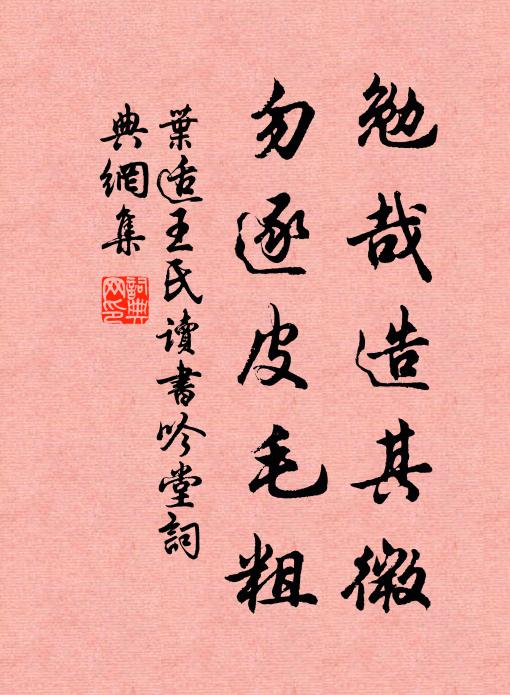 勉哉造其微
勿逐皮毛粗
葉适王氏讀書吟堂詞
典網集
詞典網印